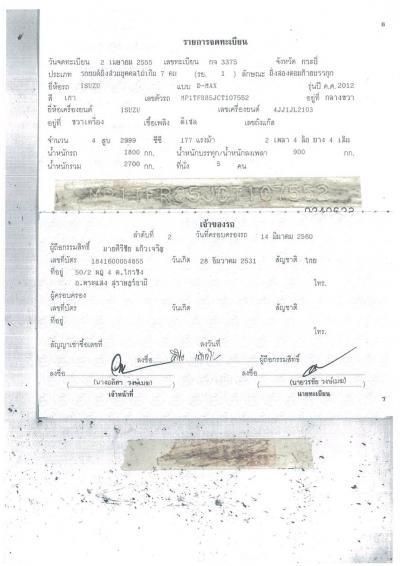 6
รายการจดทะเบียน
วันจดทะเบียน 2 เมษายน 2555 เลขทะเบียน กจ 3375 จังหวัด กระบี่
ประเภท รถยนต์นั่งส่วนบุคคลไม่เกิน 7 คน (รย. 1 ) ลักษณะ นั่งสองตอนท้ายบรรทุก
ยี่ห้อรถ ISUZU แบบ D-MAX รุ่นปี ค.ศ.2012
สี เทา เลขตัวรถ MP1TFR85JCT107552 อยู่ที่ กลางขวา
ยี่ห้อเครื่องยนต์ ISUZU เลขเครื่องยนต์ 4JJ1JL2103
อยู่ที่ ขวาเครื่อง เชื้อเพลิง ดีเซล เลขถังแก๊ส
จำนวน 4 สูบ 2999 ซีซี 177 แรงม้า 2 เพลา 4 ล้อ ยาง 4 เส้น
น้ำหนักรถ 1800 กก. น้ำหนักบรรทุก/น้ำหนักลงเพลา 900 กก.
น้ำหนักรวม 2700 กก. ที่นั่ง 5 คน
เจ้าของรถ
ลำดับที่ 2 วันที่ครอบครองรถ 14 มีนาคม 2560
ผู้ถือกรรมสิทธิ์
เลขที่บัตร 1841600054855 วันเกิด 28 ธันวาคม 2531 สัญชาติ ไทย
ที่อยู่ 50/2 หมู่ 4 ต.ไทรขึง
อ.พระแสง สุราษฎร์ธานี โทร.
ผู้ครอบครอง
เลขที่บัตร วันเกิด สัญชาติ
ที่อยู่ โทร.
สัญญาเช่าซื้อเลขที่ ลงวันที่
ลงชื่อ ผู้ถือกรรมสิทธิ์
ลงชื่อ ลงชื่อ
เจ้าหน้าที่ นายทะเบียน
7